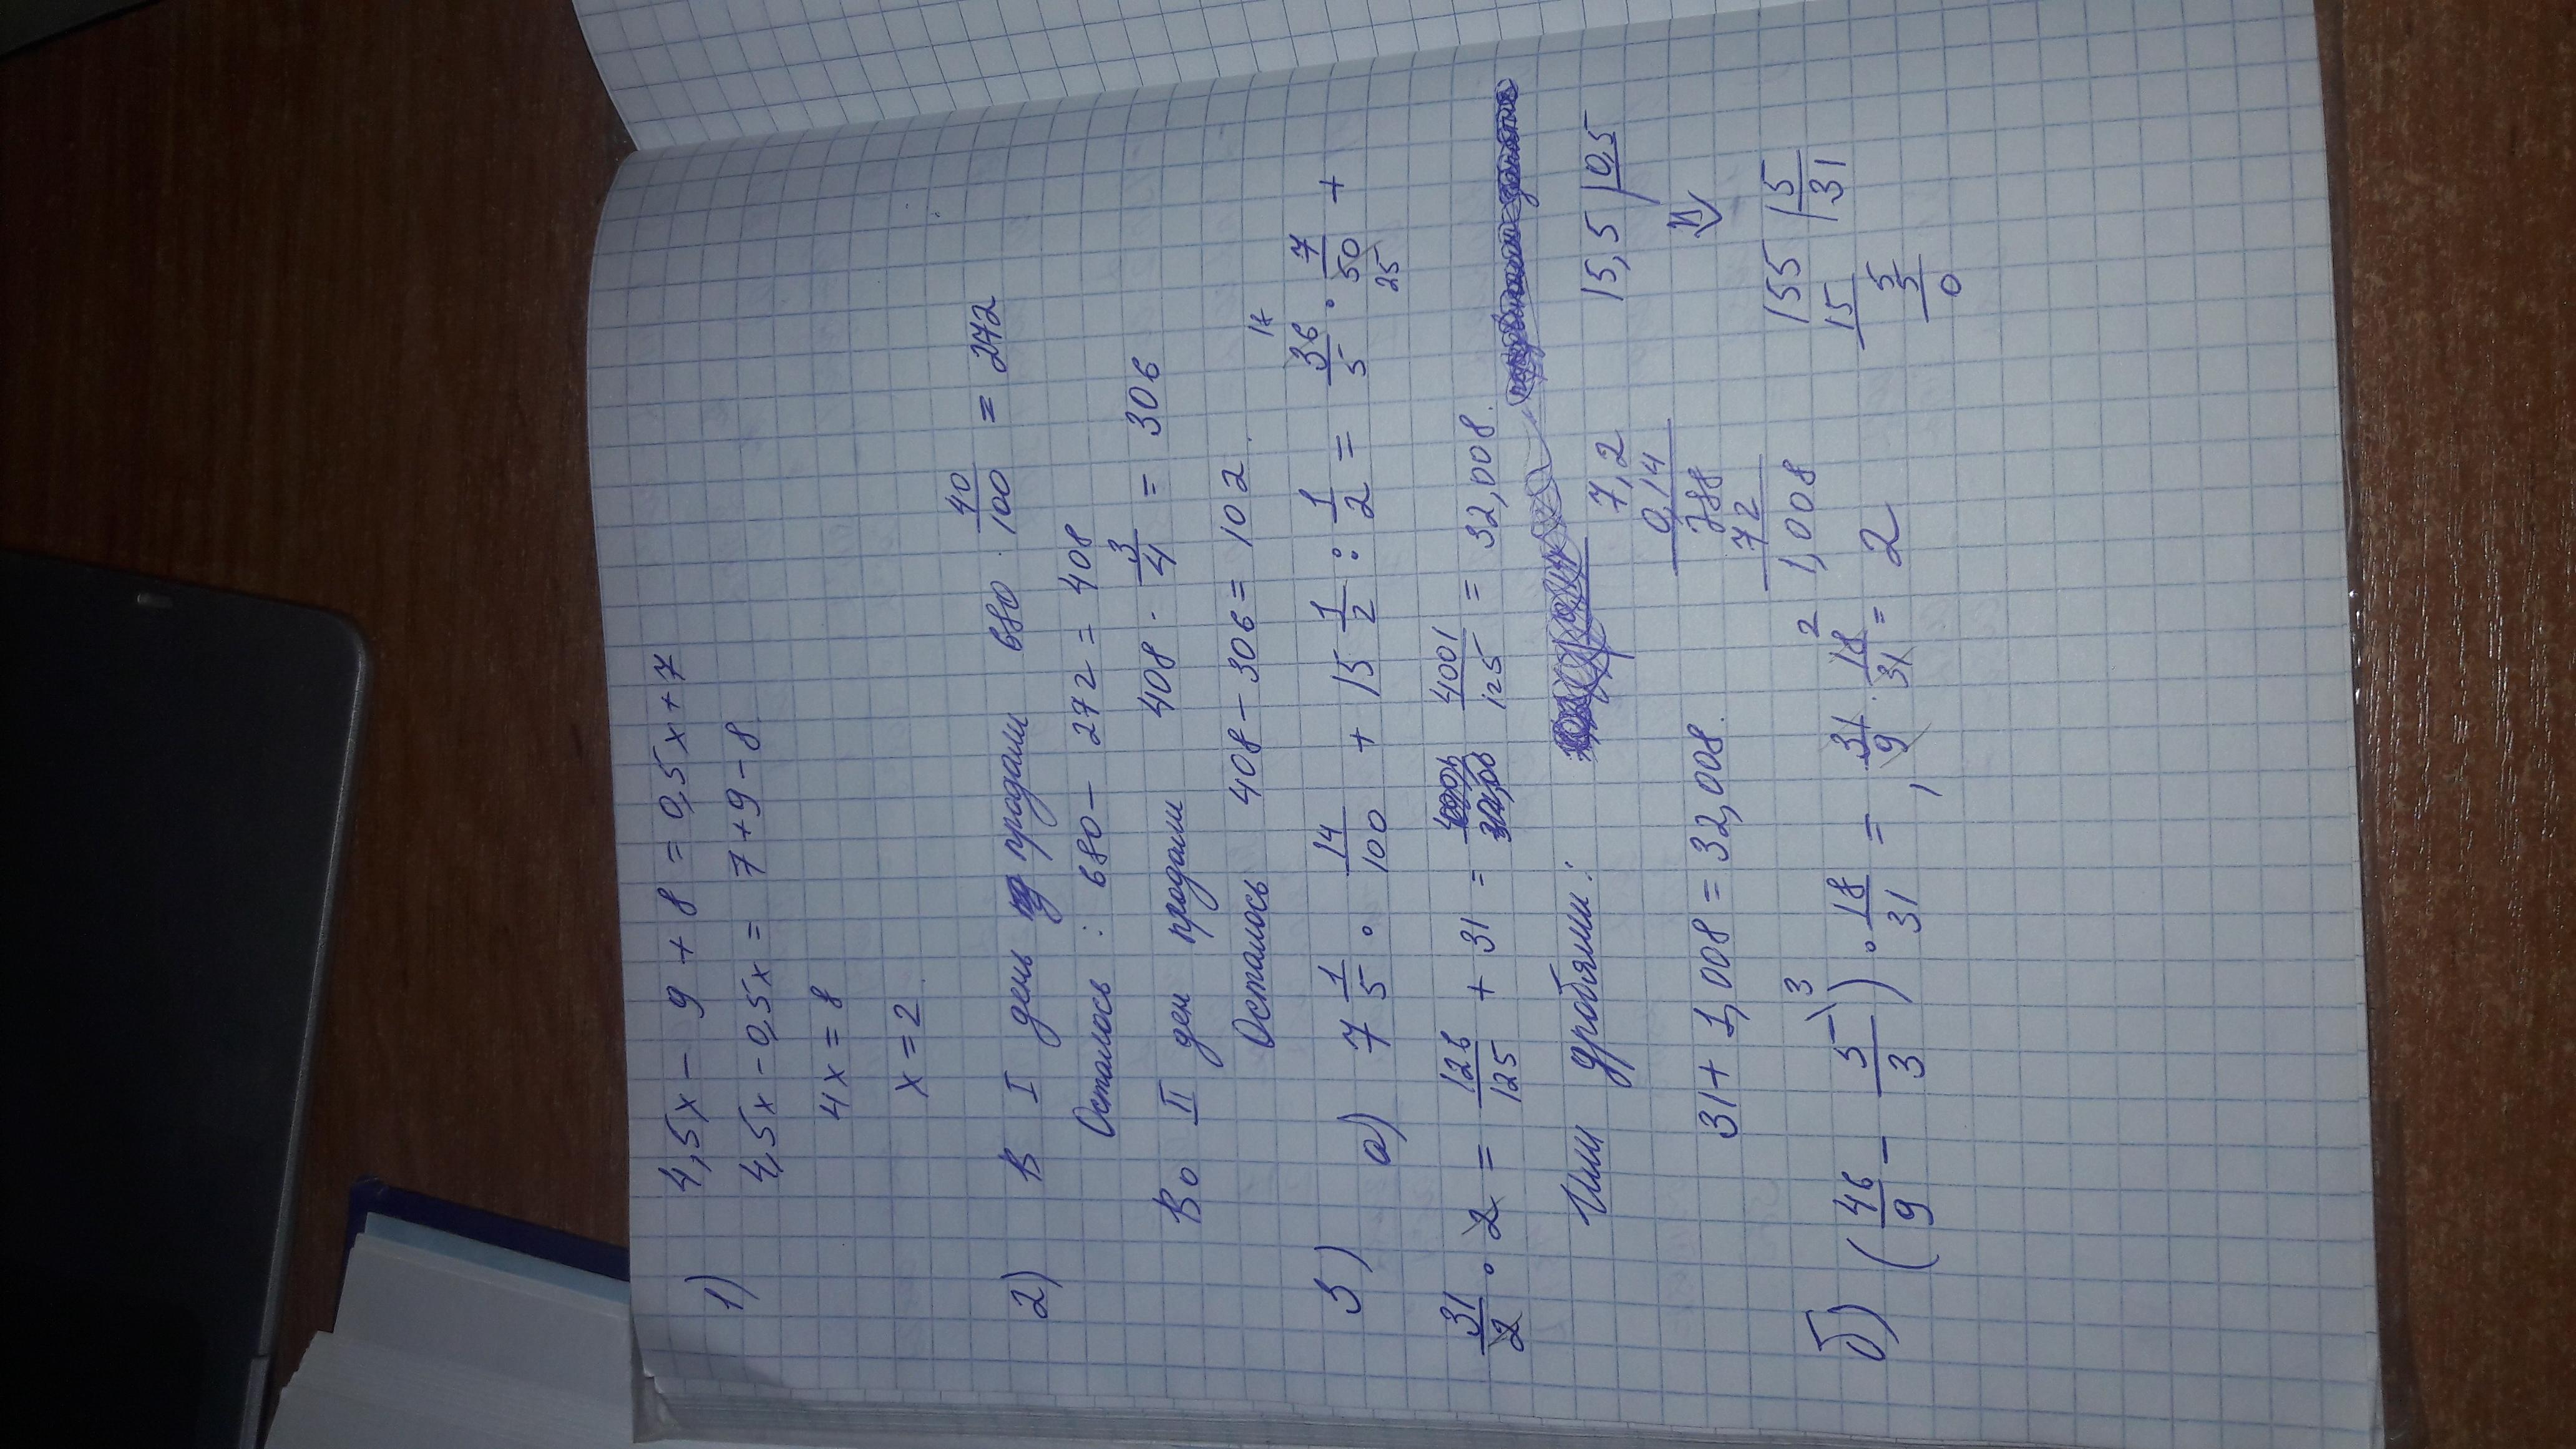 1) 4,5x - 9 + 8 = 0,5x + 7
4,5x - 0,5x = 7 + 9 - 8
4x = 8
x = 2
2) В I день продали 680 · 40/100 = 272
Осталось : 680 - 272 = 408
Во II ден продали 408 · 3/4 = 306
Осталось 408 - 306 = 102.
3) а) 7 1/5 · 14/100 + 15 1/2 : 1/2 = 36/5 · 7/50 +
31/2 · 2 = 126/125 + 31 = 4001/125 = 32,008.
Или дробями:
7,2
0,14
288
72
1,008
15,5 | 0,5
⇓
155 | 5
15 | 31
5
5
0
31 + 1,008 = 32,008.
б) (46/9 - 5/3 \3) · 18/31 = 31/9 · 18/31 = 2